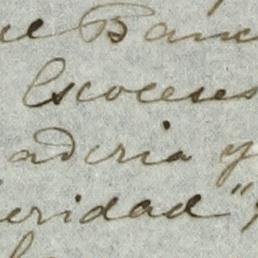 ue Banc
Escoceses
adería y
eridad",